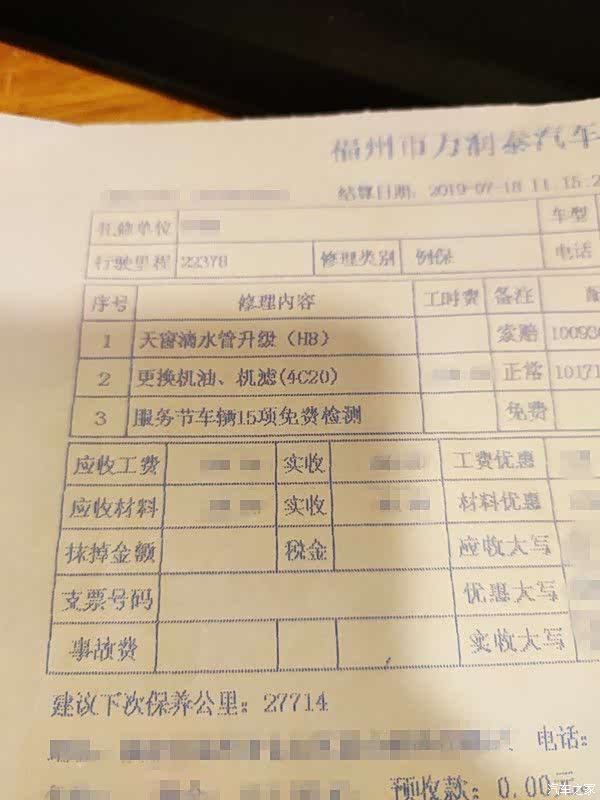 福州市万利泰汽车
结算日期: 2019-07-18 11:15:2
托修单位 车型
行驶里程 22378 修理类别 例保 电话
序号 修理内容 工时费 备注 配
1 天窗滴水管升级（H8） 索赔 100930
2 更换机油、机滤(4C20) 正常 10171
3 服务节车辆15项免费检测 免费
应收工费 实收 工费优惠
应收材料 实收 材料优惠
抹掉金额 税金 应收大写
支票号码 优惠大写
事故费 实收大写
建议下次保养公里: 27714
电话:
预收款: 0.00元
汽车之家